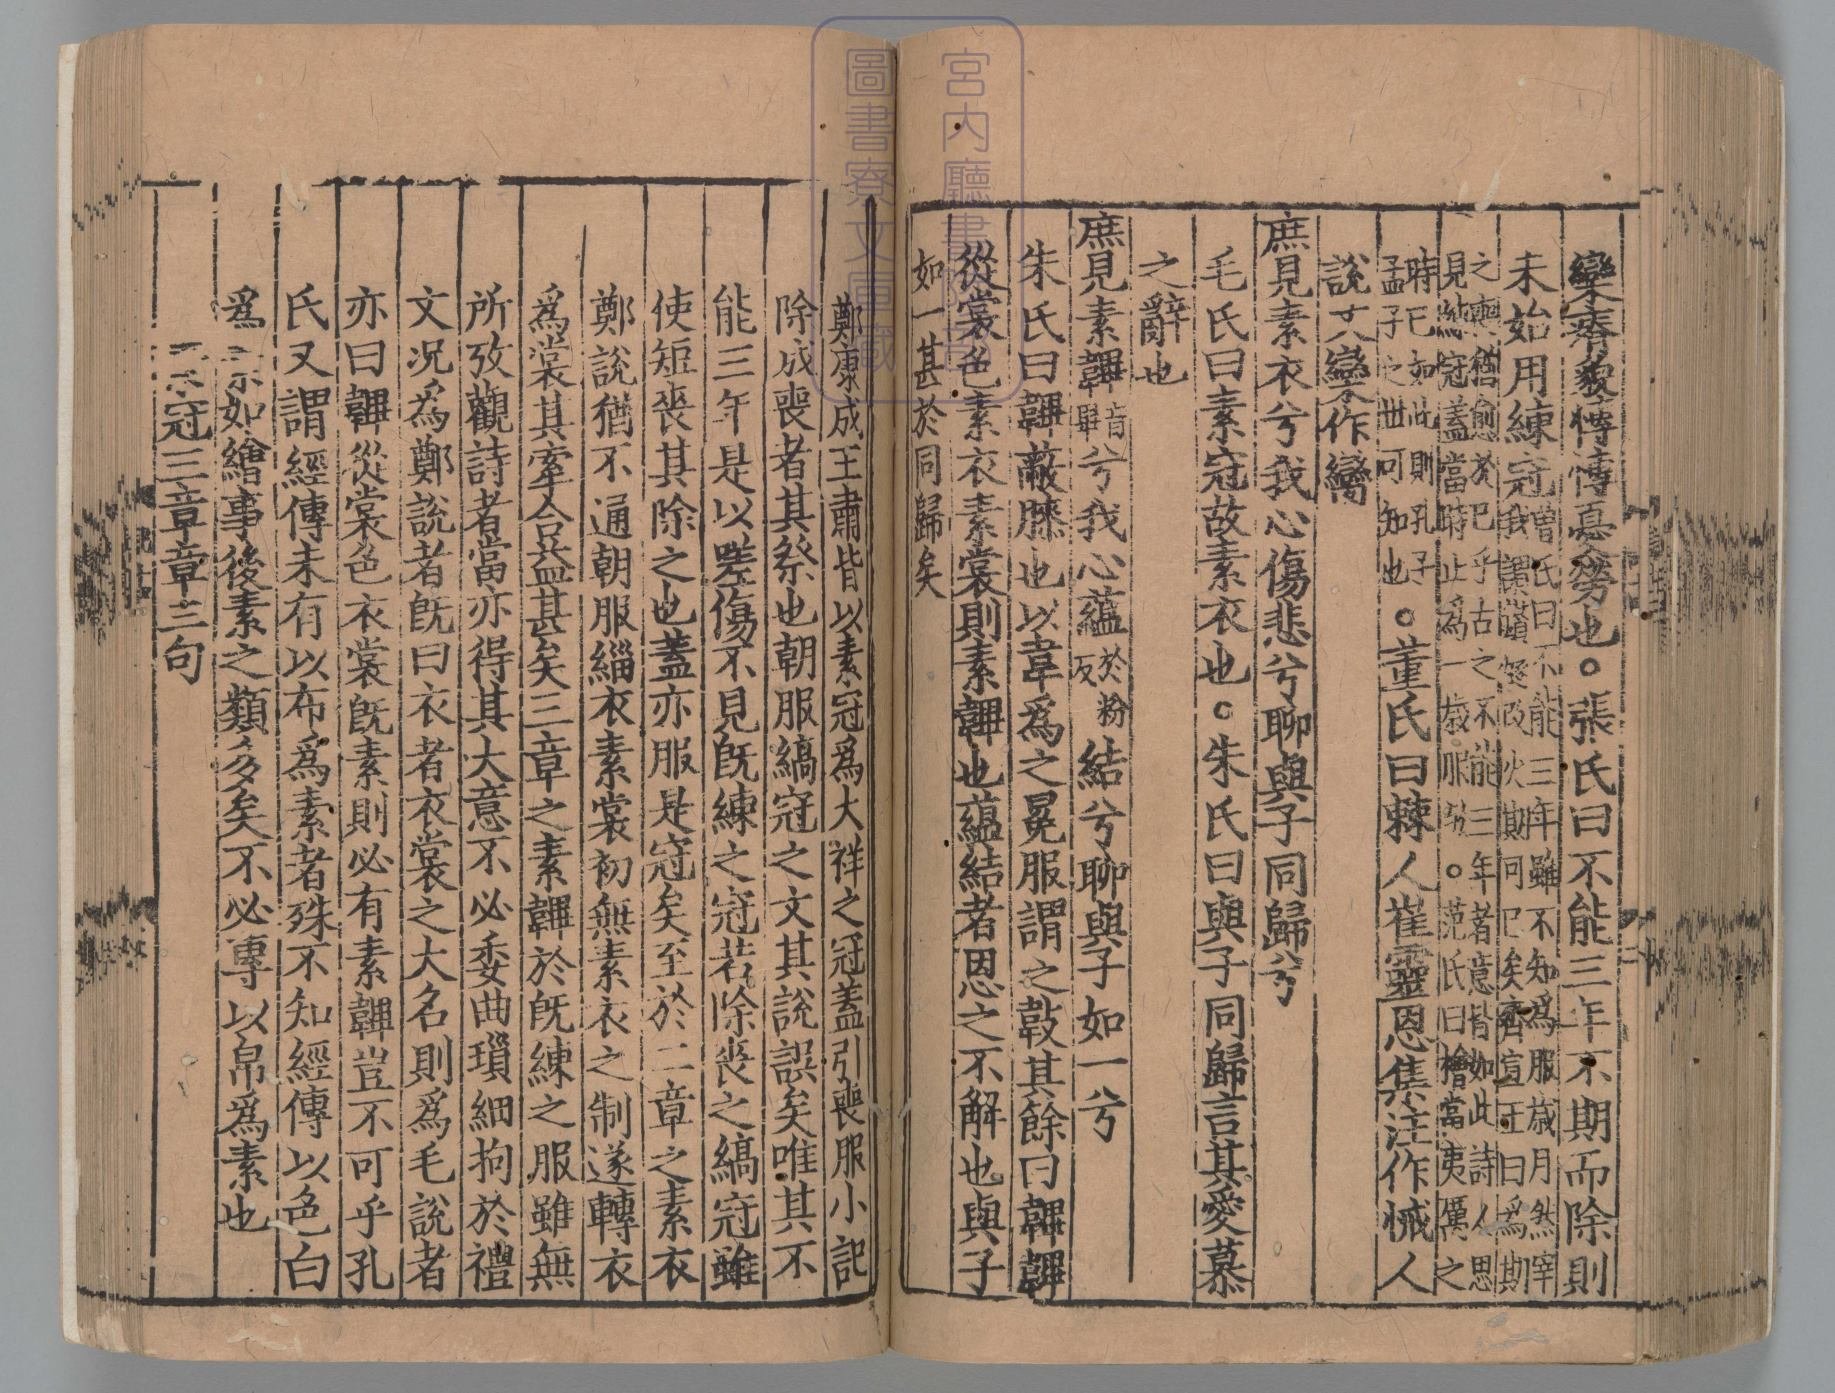 欒瘠貌慱慱憂勞也○張氏曰不能三年不期而除則
未始用練冠我謂
曾氏曰不能三年雖不知爲服歳月然宰
改火期可已矣齊宣王曰爲期
之喪猶愈於已乎古之不能三年者意皆如此詩人思
見練冠蓋當時止爲一歳○范氏曰檜當夷厲之
時已如此則孔子
孟子之世可知也○董氏曰棘人崔靈恩集注作悈人
說文欒作臠
庶見素衣兮我心傷悲兮聊與子同歸兮
毛氏曰素冠故素衣也○朱氏曰與子同歸言其愛慕
之辭也
庶見素韠音畢兮我心蘊於粉反結兮聊與子如一兮
朱氏曰韠蔽膝也以韋爲之冕服謂之韍其餘曰韠韠
從裳色素衣素裳則素韠也蘊結者思之不解也與子
如一甚於同歸矣
鄭康成王肅皆以素冠爲大祥之冠蓋引喪服小記
除成喪者其祭也朝服縞冠之文其說誤矣唯其不
能三年是以嗟傷不見旣練之冠若除喪之縞冠雖
使短喪其除之也蓋亦服是冠矣至於二章之素衣
鄭說猶不通朝服緇衣素裳初無素衣之制遂轉衣
爲裳其牽合益甚矣三章之素韠於旣練之服雖無
所攷觀詩者當亦得其大意不必委曲瑣細拘於禮
文况爲鄭說者旣曰衣者衣裳之大名則爲毛說者
亦曰韠從裳色衣裳旣素則必有素韠豈不可乎孔
氏又謂經傳未有以布爲素者殊不知經傳以色白
爲素如繪事後素之類多矣不必專以帛爲素也
素冠三章章三句
宮内廳書陵部
圖書寮文庫蔵